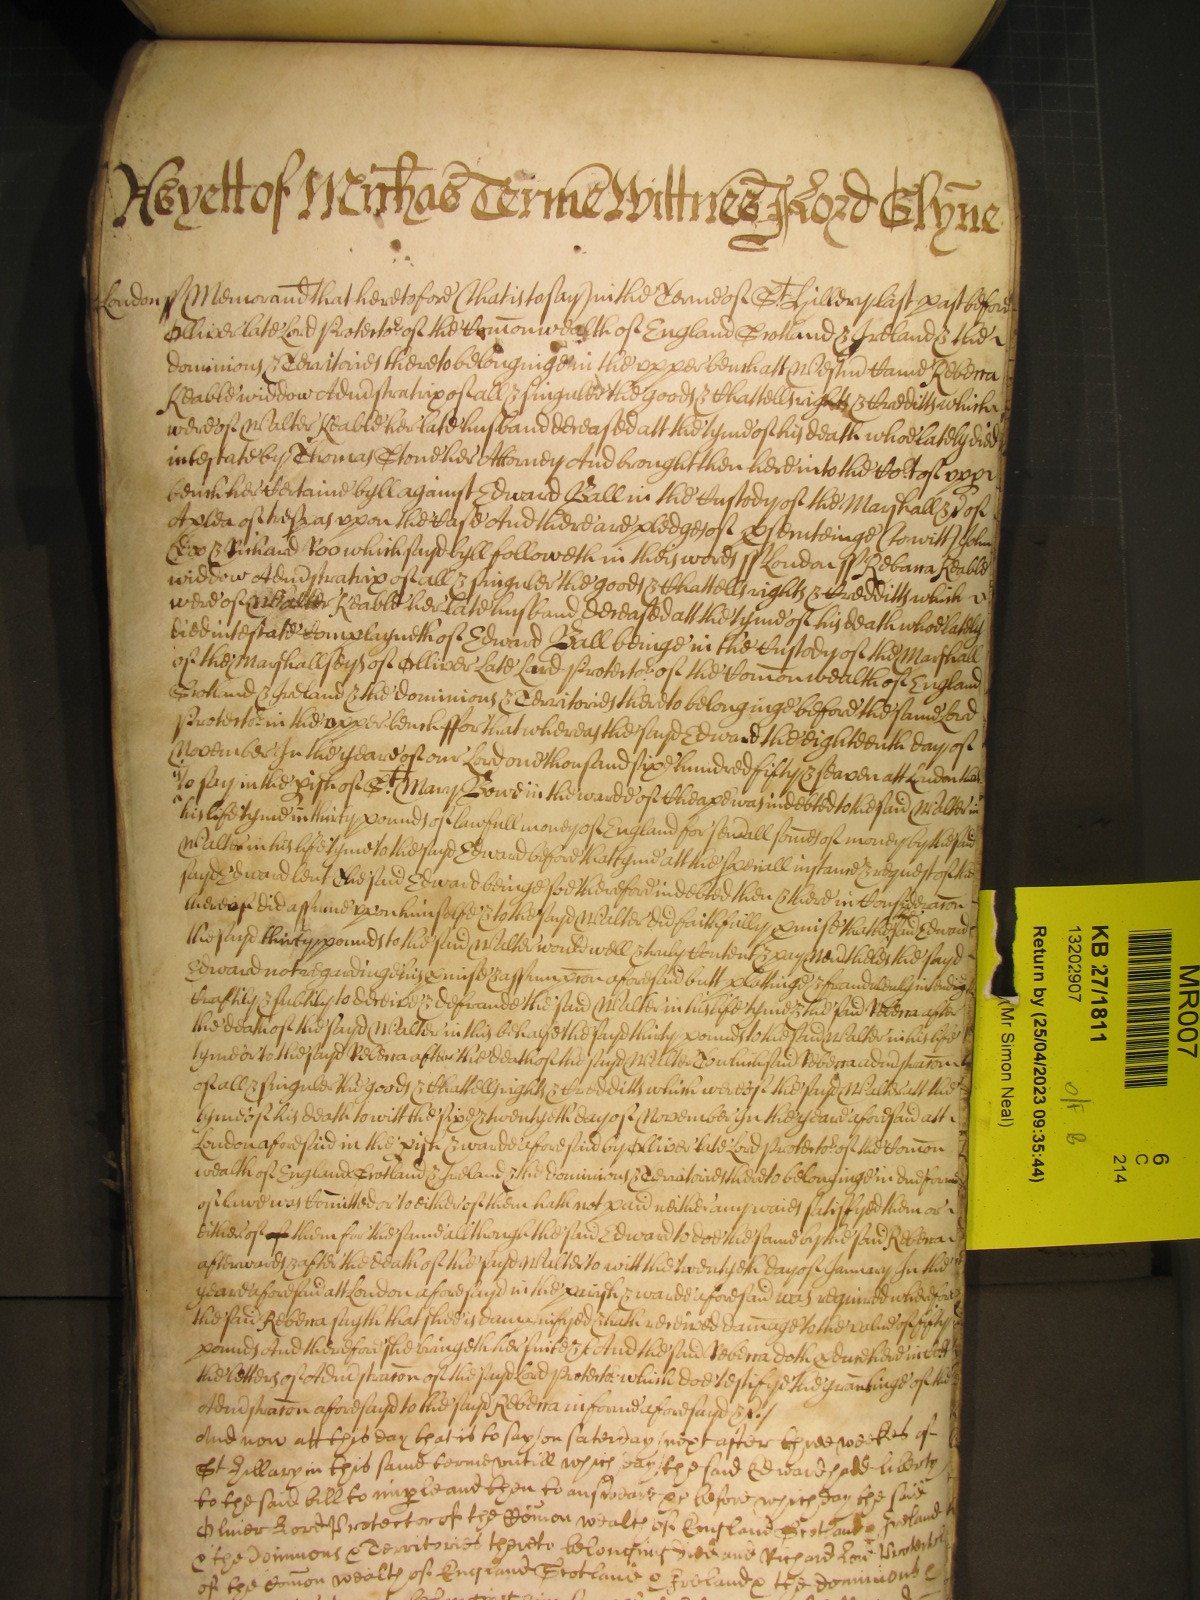 As yett of Michas Terme Wittnes J Lord Glyne
London ss Memorand that heretofore (that is to say) in the Terme of St. Hillery last past before
Olliver late Lord Protector of the Comonwealth of England Scotland & Ireland & the
dominions & Territories thereto belonginge in the upper bench att Westm Came Rebecca
Keable widdow Administratrix of all & singuler the goods & Chattells rights & Creditts which
were of Walter Keable her late husband deceased att the tyme of his death whoe lately died
intestate by Thomas Stone her Attorney And brought then here into the Cort of upper
bench her Certaine byll against Edward Ball in the Custody of the Marshall & of
A plea of trespas upon the Case And there are pledges of prsecuteinge (to witt) John
Doo & Richard Roo which sayd byll followeth in theis words ss London ss Rebecca Keable
widdow Administratrix of all & singuler the goods & Chattells rights & Creditts which
were of Walter Keable her late husband deceased att the tyme of his death whoe lately
died intestate Complayneth of Edward Ball beinge in the Custody of the Marshall
of the Marshallseys of Olliver Late Lord Protector of the Comonwealth of England
Scotland & Ireland & the dominions & Territories thereto belonginge before the same Lord
Protector in the upper bench ffor that whereas the sayd Edward the eighteenth day of
November In the yeare of our Lord one thousand six hundred fifty & seaven att London that
is to say in the pish of St. Mary Bowe in the warde of Cheape was indebted to the said Walter in
his life tyme in thirty pounds of lawfull money of England for severall somes of money by the said
Walter in his life tyme to the sayd Edward before that tyme att the speciall instance & request of the
sayd Edward lent & the said Edward beinge soe therefore indebted then & there in Consideracon
thereof did assume upon himselfe & to the sayd Walter did faithfully pmise that he the said Edward
the sayd thirty pounds to the said Walter would well & truly Content & pay Neverthelesse the sayd
Edward not regardinge his pmise & assumpcon aforesaid butt plottinge & fraudulently intendinge
craftily & subtily to deceive & defraude the said Walter in his life tyme & the said Rebecca after
the death of the sayd Walter in this behalfe the sayd thirty pounds to the said Walter in his life
tyme or to the sayd Rebecca after the death of the sayd Walter To which said Rebecca administracon
of all & singuler the goods & Chattells rights & Creditts which were of the sayd Walter att the
tyme of his death to witt the six & twentyeth day of November In the yeare aforesaid att
London aforesaid in the pish & warde aforesaid by Olliver late Lord Protector of the Comon
wealth of England Scotland & Ireland & the dominions & Territories thereto belonginge in due forme
of lawe was Comitted or to either of them hath not paid neither any waies satisfyed them or
either of them for the same allthough the said Edward to doe the same by the said Rebecca
afterwards & after the death of the sayd Walter to witt the twentyeth day of January In the
yeare aforesaid att London aforesayd in the parish & warde aforesaid was required wherefore
the said Rebecca sayth that shee is damnifyed & hath received damage to the value of fifty
pounds And therefore she bringeth her suite &c And the said Rebecca doth pduce here in Cort
the letters of Administracon of the sayd Lord Protector which doe testifye the grantinge of the
Administracon aforesayd to the sayd Rebecca in forme aforesayd &c./
And now att this day that is to say on Saturday next after three weekes of
St Hillary in this same terme untill which day the said Edward had liberty
to the said bill to imparle and then to answeare &c before which day the said
Oliver Lord Protector of the Comon wealth of England Scotland & Ireland
& the Dominions & Territories thereto belonging died and Richard Lord Protector
of the Comon wealth of England Scotland & Ireland & the Dominions &
MR007
KB 27/1811
13202907
Return by (25/04/2023 09:35:44)
(Mr Simon Neal)
6
C
214